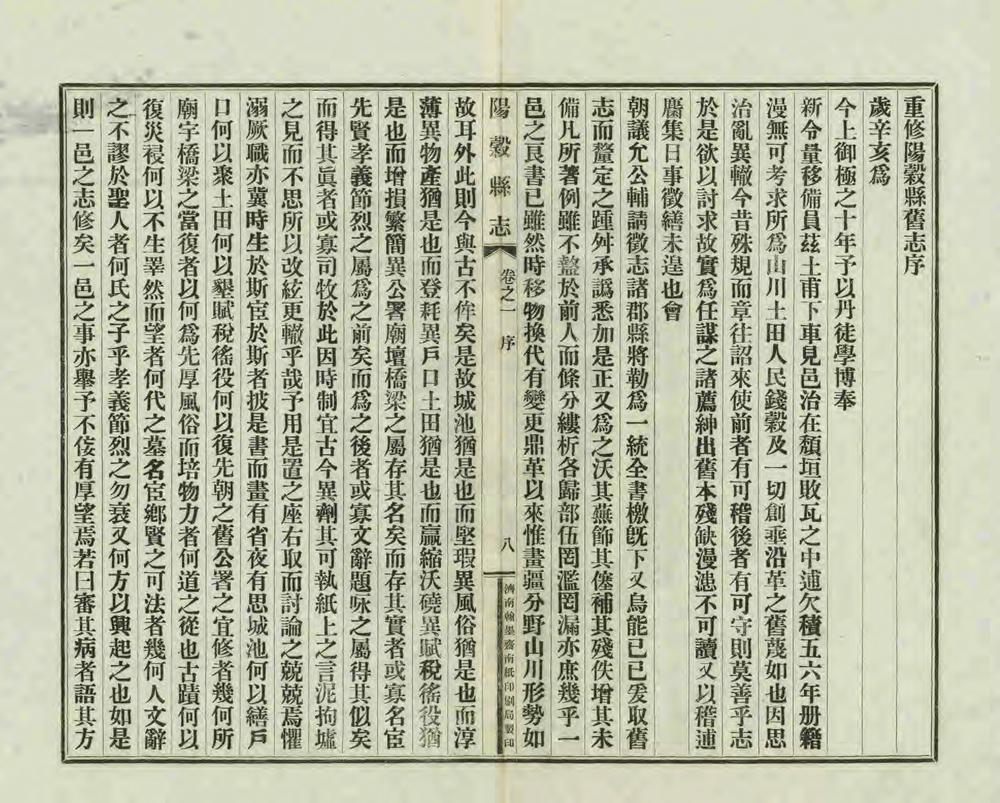 重修陽穀縣舊志序
歲辛亥爲
今上御極之十年予以丹徒學博奉
新令量移備員茲土甫下車見邑治在頹垣敗瓦之中逋欠積五六年册籍
漫無可考求所爲山川土田人民錢穀及一切創乘沿革之舊蔑如也因思
治亂異轍今昔殊規而章往詔來使前者有可稽後者有可守則莫善乎志
於是欲以討求故實爲任謀之諸薦紳出舊本殘缺漫漶不可讀又以稽逋
麕集日事徵繕未遑也會
朝議允公輔請徵志諸郡縣將勒爲一統全書檄旣下又烏能已已爰取舊
志而釐定之踵舛承譌悉加是正又爲之沃其蕪飾其僿補其殘佚增其未
備凡所著例雖不盩於前人而條分縷析各歸部伍罔濫罔漏亦庶幾乎一
邑之良書已雖然時移物換代有變更鼎革以來惟畫疆分野山川形勢如
陽穀縣志 卷之一 序 八 濟南翰墨齋南紙印刷局製印
故耳外此則今與古不侔矣是故城池猶是也而堅瑕異風俗猶是也而淳
薄異物產猶是也而登耗異戶口土田猶是也而贏縮沃磽異賦稅徭役猶
是也而增損繁簡異公署廟壇橋梁之屬存其名矣而存其實者或寡名宦
先賢孝義節烈之屬爲之前矣而爲之後者或寡文辭題咏之屬得其似矣
而得其眞者或寡司牧於此因時制宜古今異劑其可執紙上之言泥拘墟
之見而不思所以改絃更轍乎哉予用是置之座右取而討論之兢兢焉懼
溺厥職亦冀時生於斯宦於斯者披是書而晝有省夜有思城池何以繕戶
口何以聚土田何以墾賦稅徭役何以復先朝之舊公署之宜修者幾何所
廟宇橋梁之當復者以何爲先厚風俗而培物力者何道之從也古蹟何以
復災祲何以不生睪然而望者何代之墓名宦鄉賢之可法者幾何人文辭
之不謬於聖人者何氏之子乎孝義節烈之勿衰又何方以興起之也如是
則一邑之志修矣一邑之事亦舉予不佞有厚望焉若曰審其病者語其方